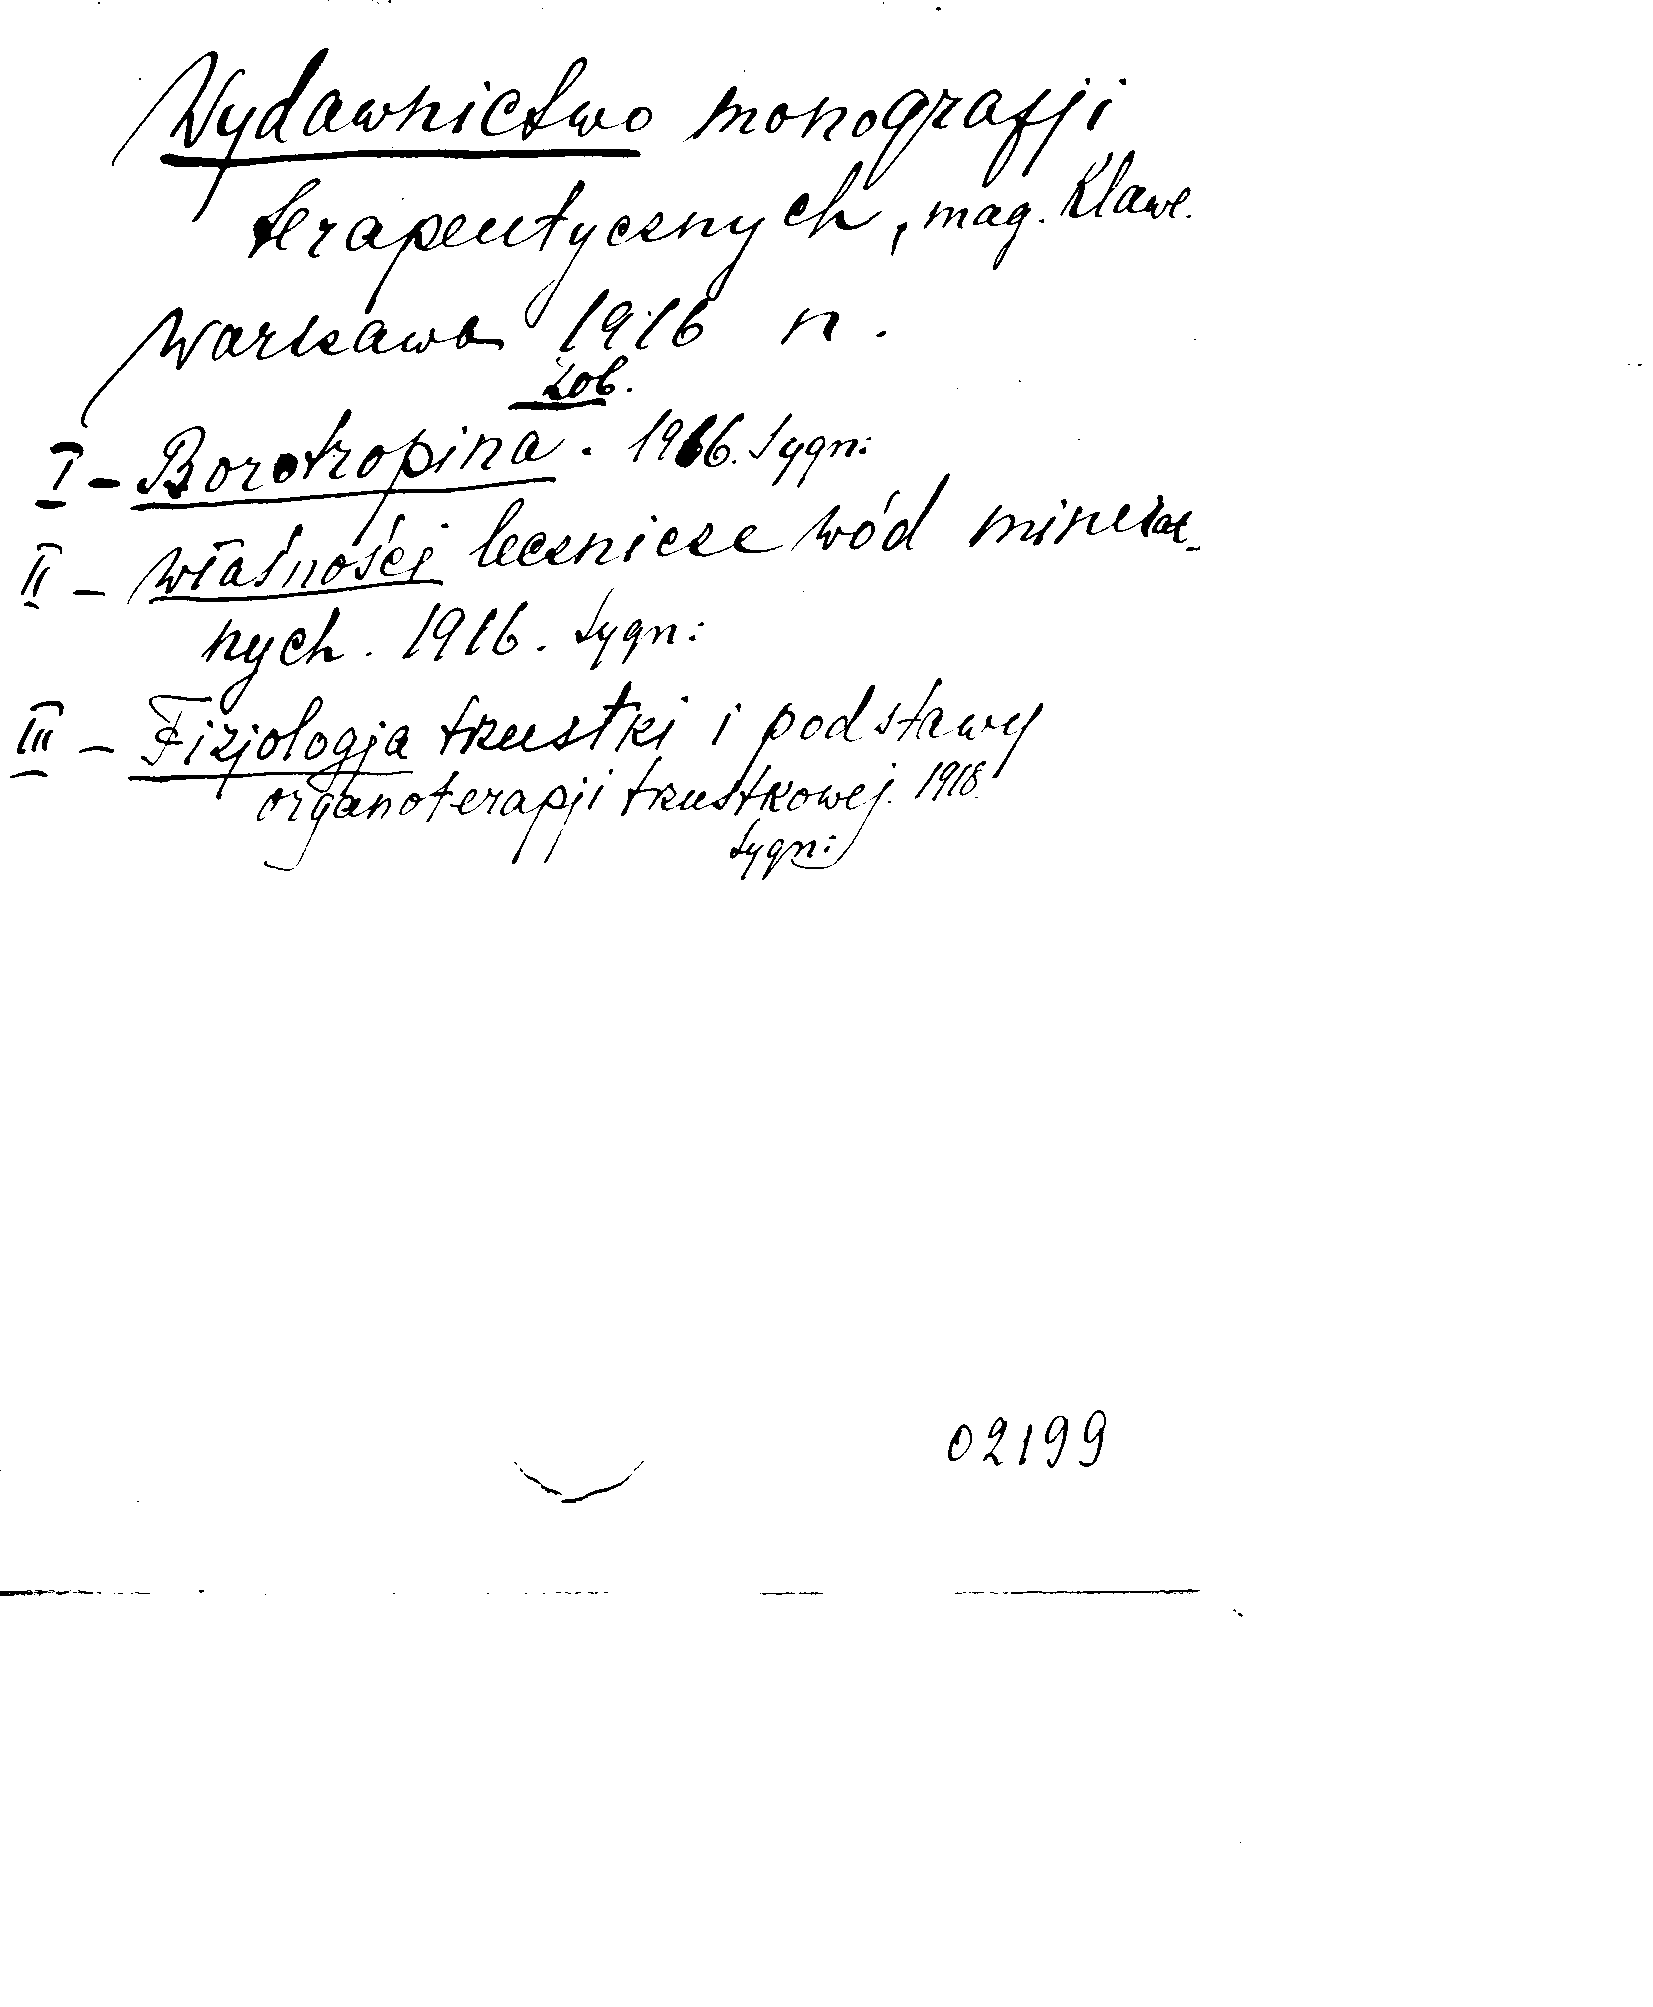 Wydawnictwo monografji
terapeutycznych, mag. Klawe.
Warszawa 1916 n.
Zob.
I - Borotropina. 1916. Sygn:
II - Własności lecznicze wód mineral-
nych. 1916. Sygn:
III - Fizjologja trzustki i podstawy
organoterapji trzustkowej. 1918.
Sygn:
02199